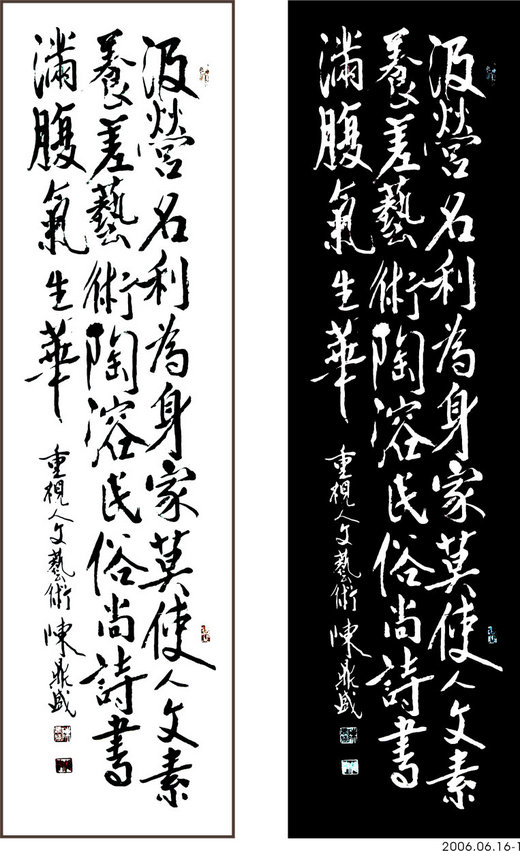 汲營名利為身家莫使人文素
養差藝術陶溶民俗尚詩書
滿腹氣生華
重視人文藝術 陳鼎盛
汲營名利為身家莫使人文素
養差藝術陶溶民俗尚詩書
滿腹氣生華
重視人文藝術 陳鼎盛
2006.06.16-1